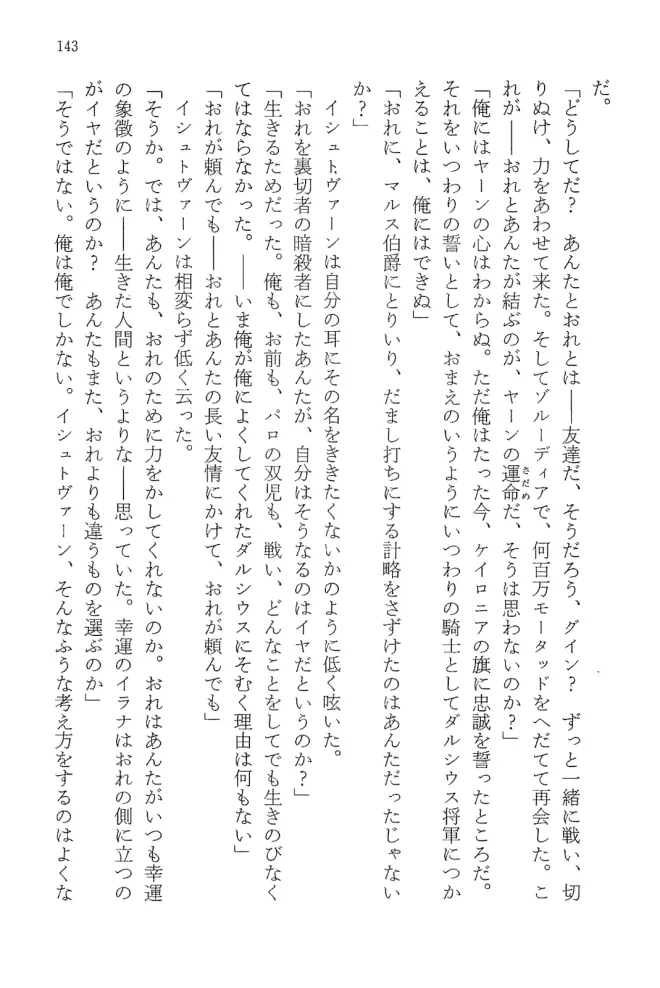 143
だ。
「どうしてだ？　あんたとおれとは――友達だ、そうだろう、グイン？　ずっと一緒に戦い、切
りぬけ、力をあわせて来た。そしてゾルーディアで、何百万モータッドをへだてて再会した。こ
れが――おれとあんたが結ぶのが、ヤーンの運命だ、そうは思わないのか？」
さだめ
「俺にはヤーンの心はわからぬ。ただ俺はたった今、ケイロニアの旗に忠誠を誓ったところだ。
それをいつわりの誓いとして、おまえのいうようにいつわりの騎士としてダルシウス将軍につか
えることは、俺にはできぬ」
「おれに、マルス伯爵にとりいり、だまし打ちにする計略をさずけたのはあんただったじゃない
か？」
イシュトヴァーンは自分の耳にその名をききたくないかのように低く呟いた。
「おれを裏切者の暗殺者にしたあんたが、自分はそうなるのはイヤだというのか？」
「生きるためだった。俺も、お前も、パロの双児も、戦い、どんなことをしてでも生きのびなく
てはならなかった。――いま俺が俺によくしてくれたダルシウスにそむく理由は何もない」
「おれが頼んでも――おれとあんたの長い友情にかけて、おれが頼んでも」
イシュトヴァーンは相変らず低く云った。
「そうか。では、あんたも、おれのために力をかしてくれないのか。おれはあんたがいつも幸運
の象徴のように――生きた人間というよりな――思っていた。幸運のイラナはおれの側に立つの
がイヤだというのか？　あんたもまた、おれよりも違うものを選ぶのか」
「そうではない。俺は俺でしかない。イシュトヴァーン、そんなふうな考え方をするのはよくな